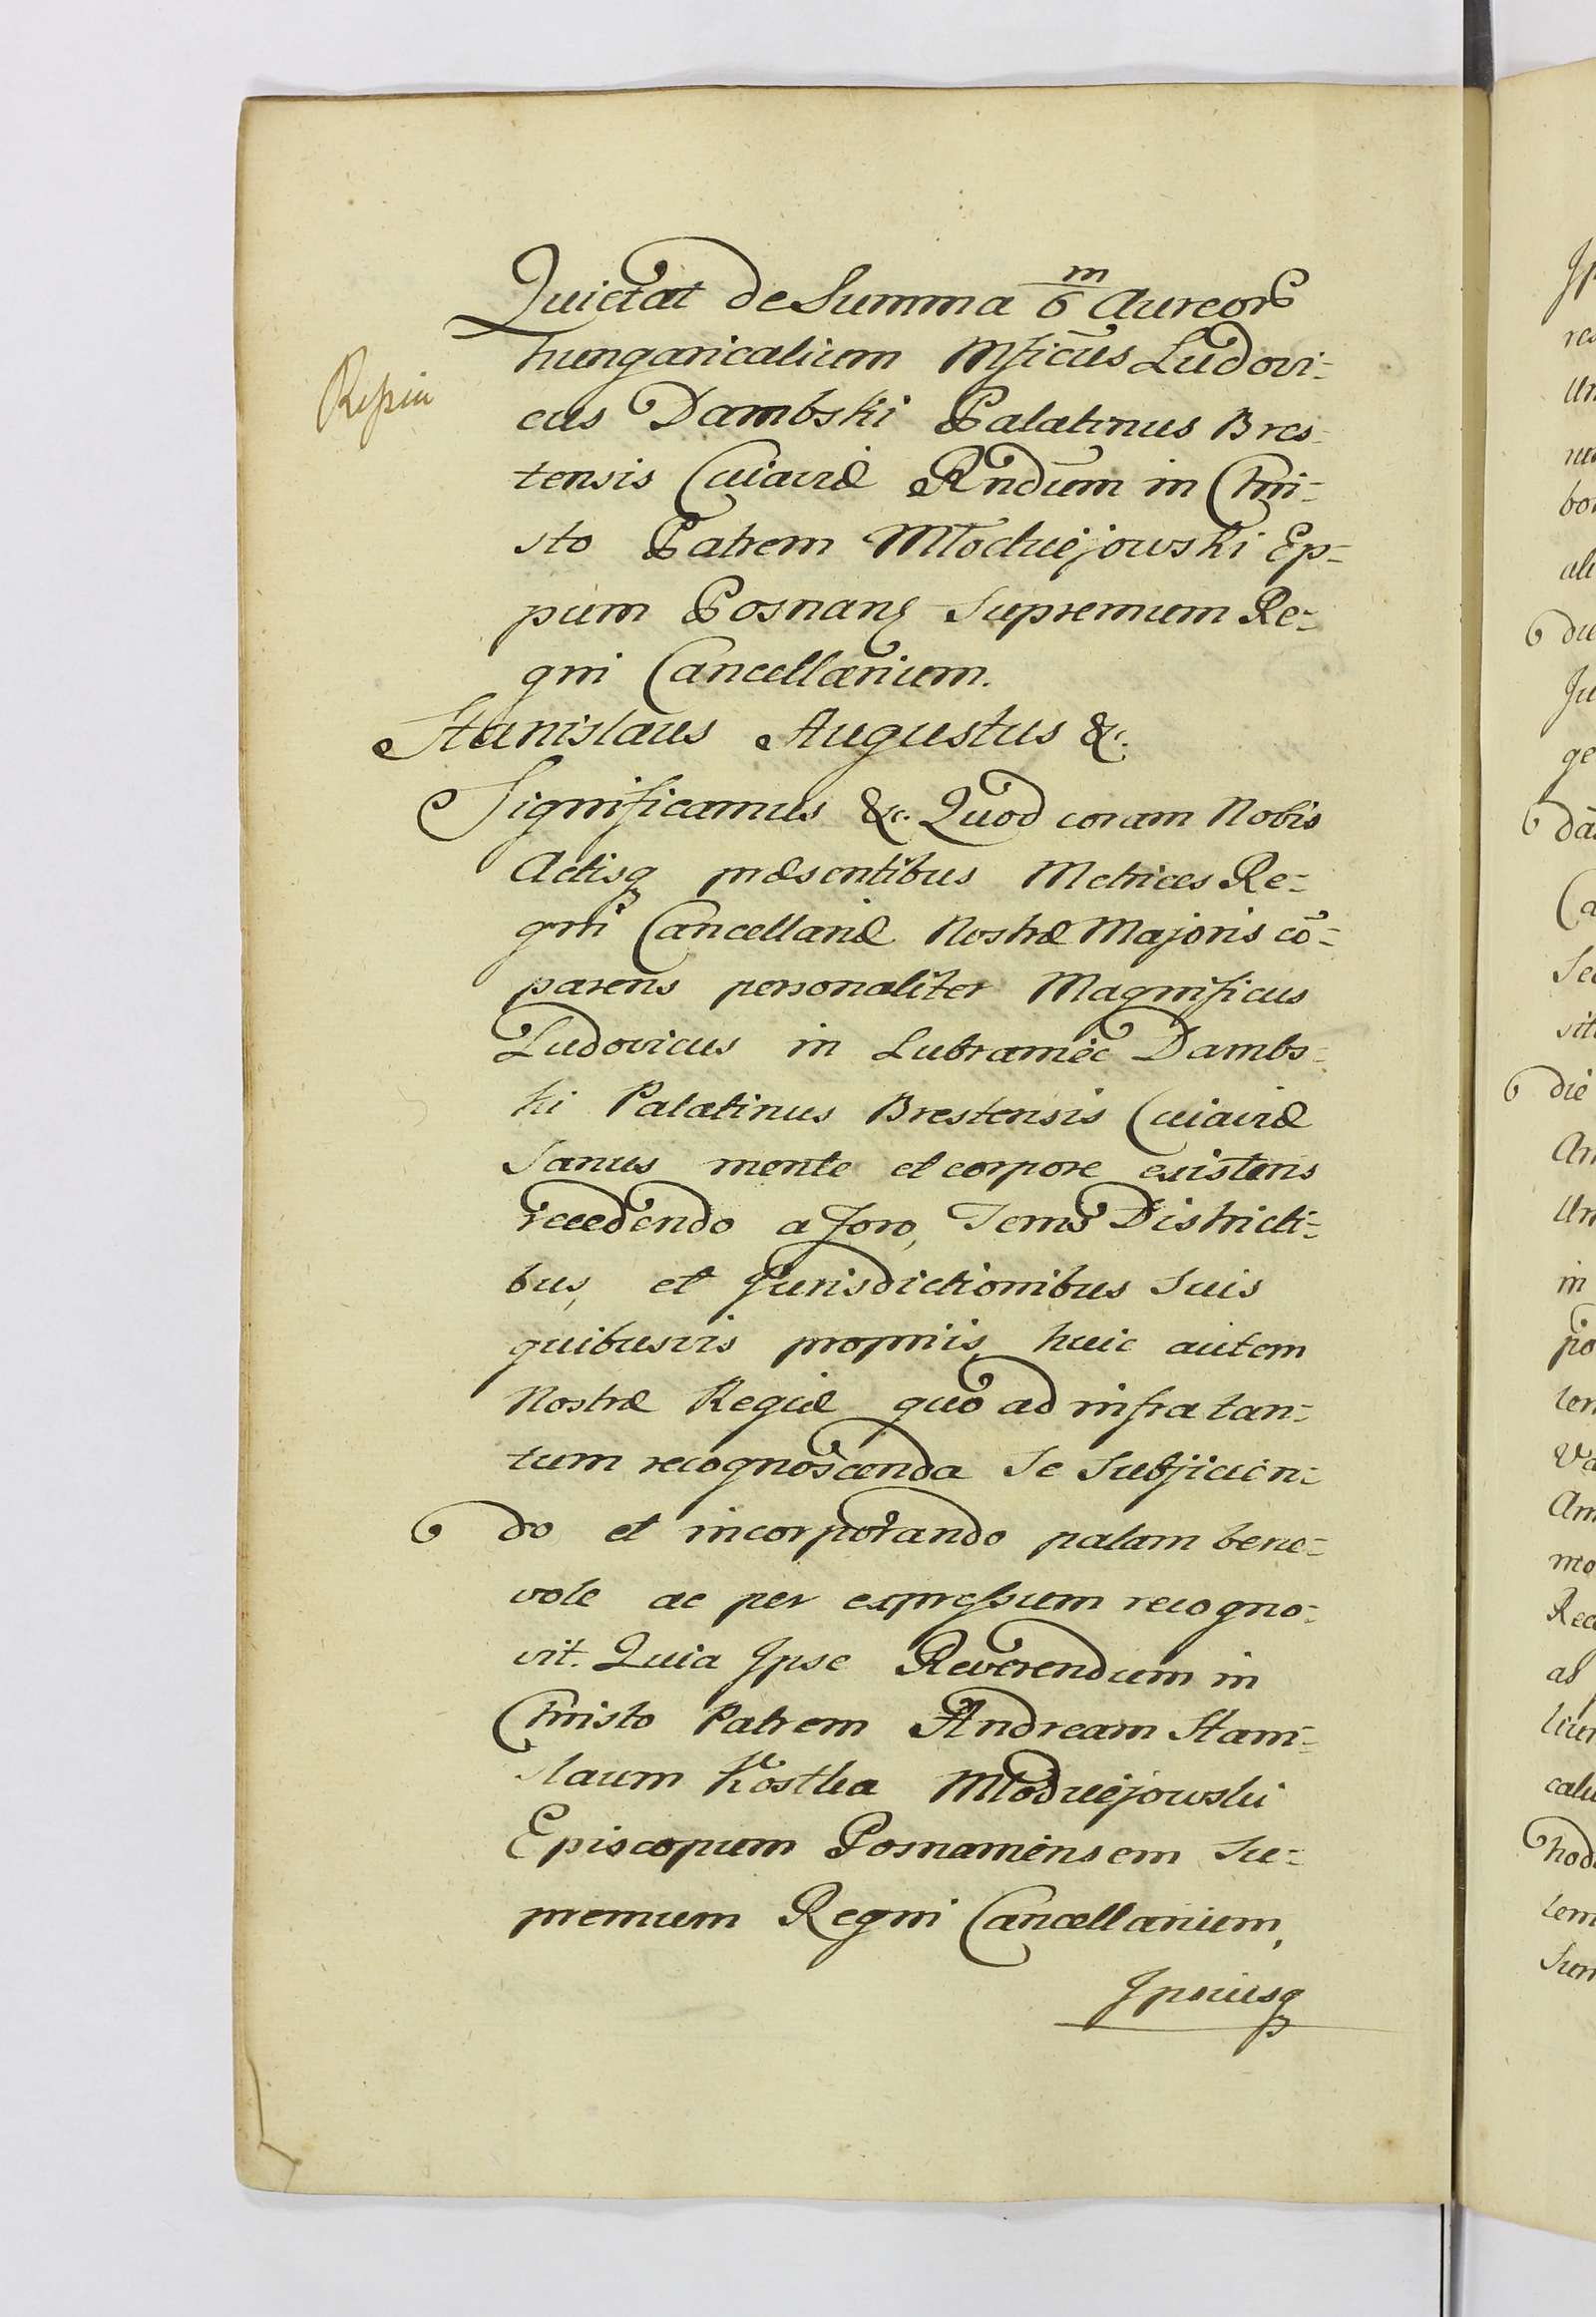 Quietat de Summa m/6 Aureor
hungaricalium Mficus Ludovi-
cus Dambski Palatinus Bres-
tensis Cuiaviæ Rndum in Chri-
sto Patrem Młodziejowski Ep-
pum Posnans Supremum Re-
gni Cancellarium.
Stanislaus Augustus &c.
Significamus &c. Quod coram Nobis
Actisq præsentibus Metrices Re-
gni Cancellariæ Nostræ Majoris cō-
parens personaliter Magnificus
Ludovicus in Lubraniec Dambs-
ki Palatinus Brestensis Cuiaviæ
Sanus mente et corpore existens
recedendo a foro, Terris Districti-
bus, et Jurisdictionibus Suis
quibusvis propriis, huic autem
Nostræ Regiæ quo ad infra tan-
tum recognoscenda Se Subjicien-
do et incorporando palam bene-
vole ac per expressum recogno-
vit. Quia Ipse Reverendum in
Christo Patrem Andream Stani-
slaum Kostka Młodziejowski
Episcopum Posnaniensem Su-
premum Regni Cancellarium,
Ipsiusq